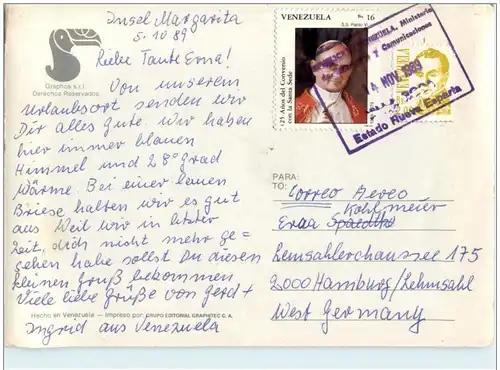 Insel Margarita
5.10.89
Liebe Tante Erna!
Von unserem
Urlaubsort senden wir
Dir alles Gute. Wir haben
hier immer blauen
Himmel und 28° grad
Wärme. Bei einer lauen
Briese halten wir es gut
aus. Weil wir in letzter
Zeit, dich nicht mehr ge=
sehen habe sollst Du diesen
kleinen Gruß bekommen
Viele liebe Grüße von Gerd +
Ingrid aus Venezuela
Graphos s.r.l.
Derechos Reservados
Hecho en Venezuela - Impreso por: GRUPO EDITORIAL GRAPHITEC C. A.
VENEZUELA Bs 16
S.S. Pablo VI
25 Años del Convenio
con la Santa Sede
VENEZUELA
VENEZUELA. Ministerio
y Comunicaciones
4 NOV. 1989
Estado Nueva Esparta
PARA:
TO:
Correo Aereo
Kohlmeier
Erna
Lemsahlerchaussee 175
2000 Hamburg / Lehmsahl
West Germany